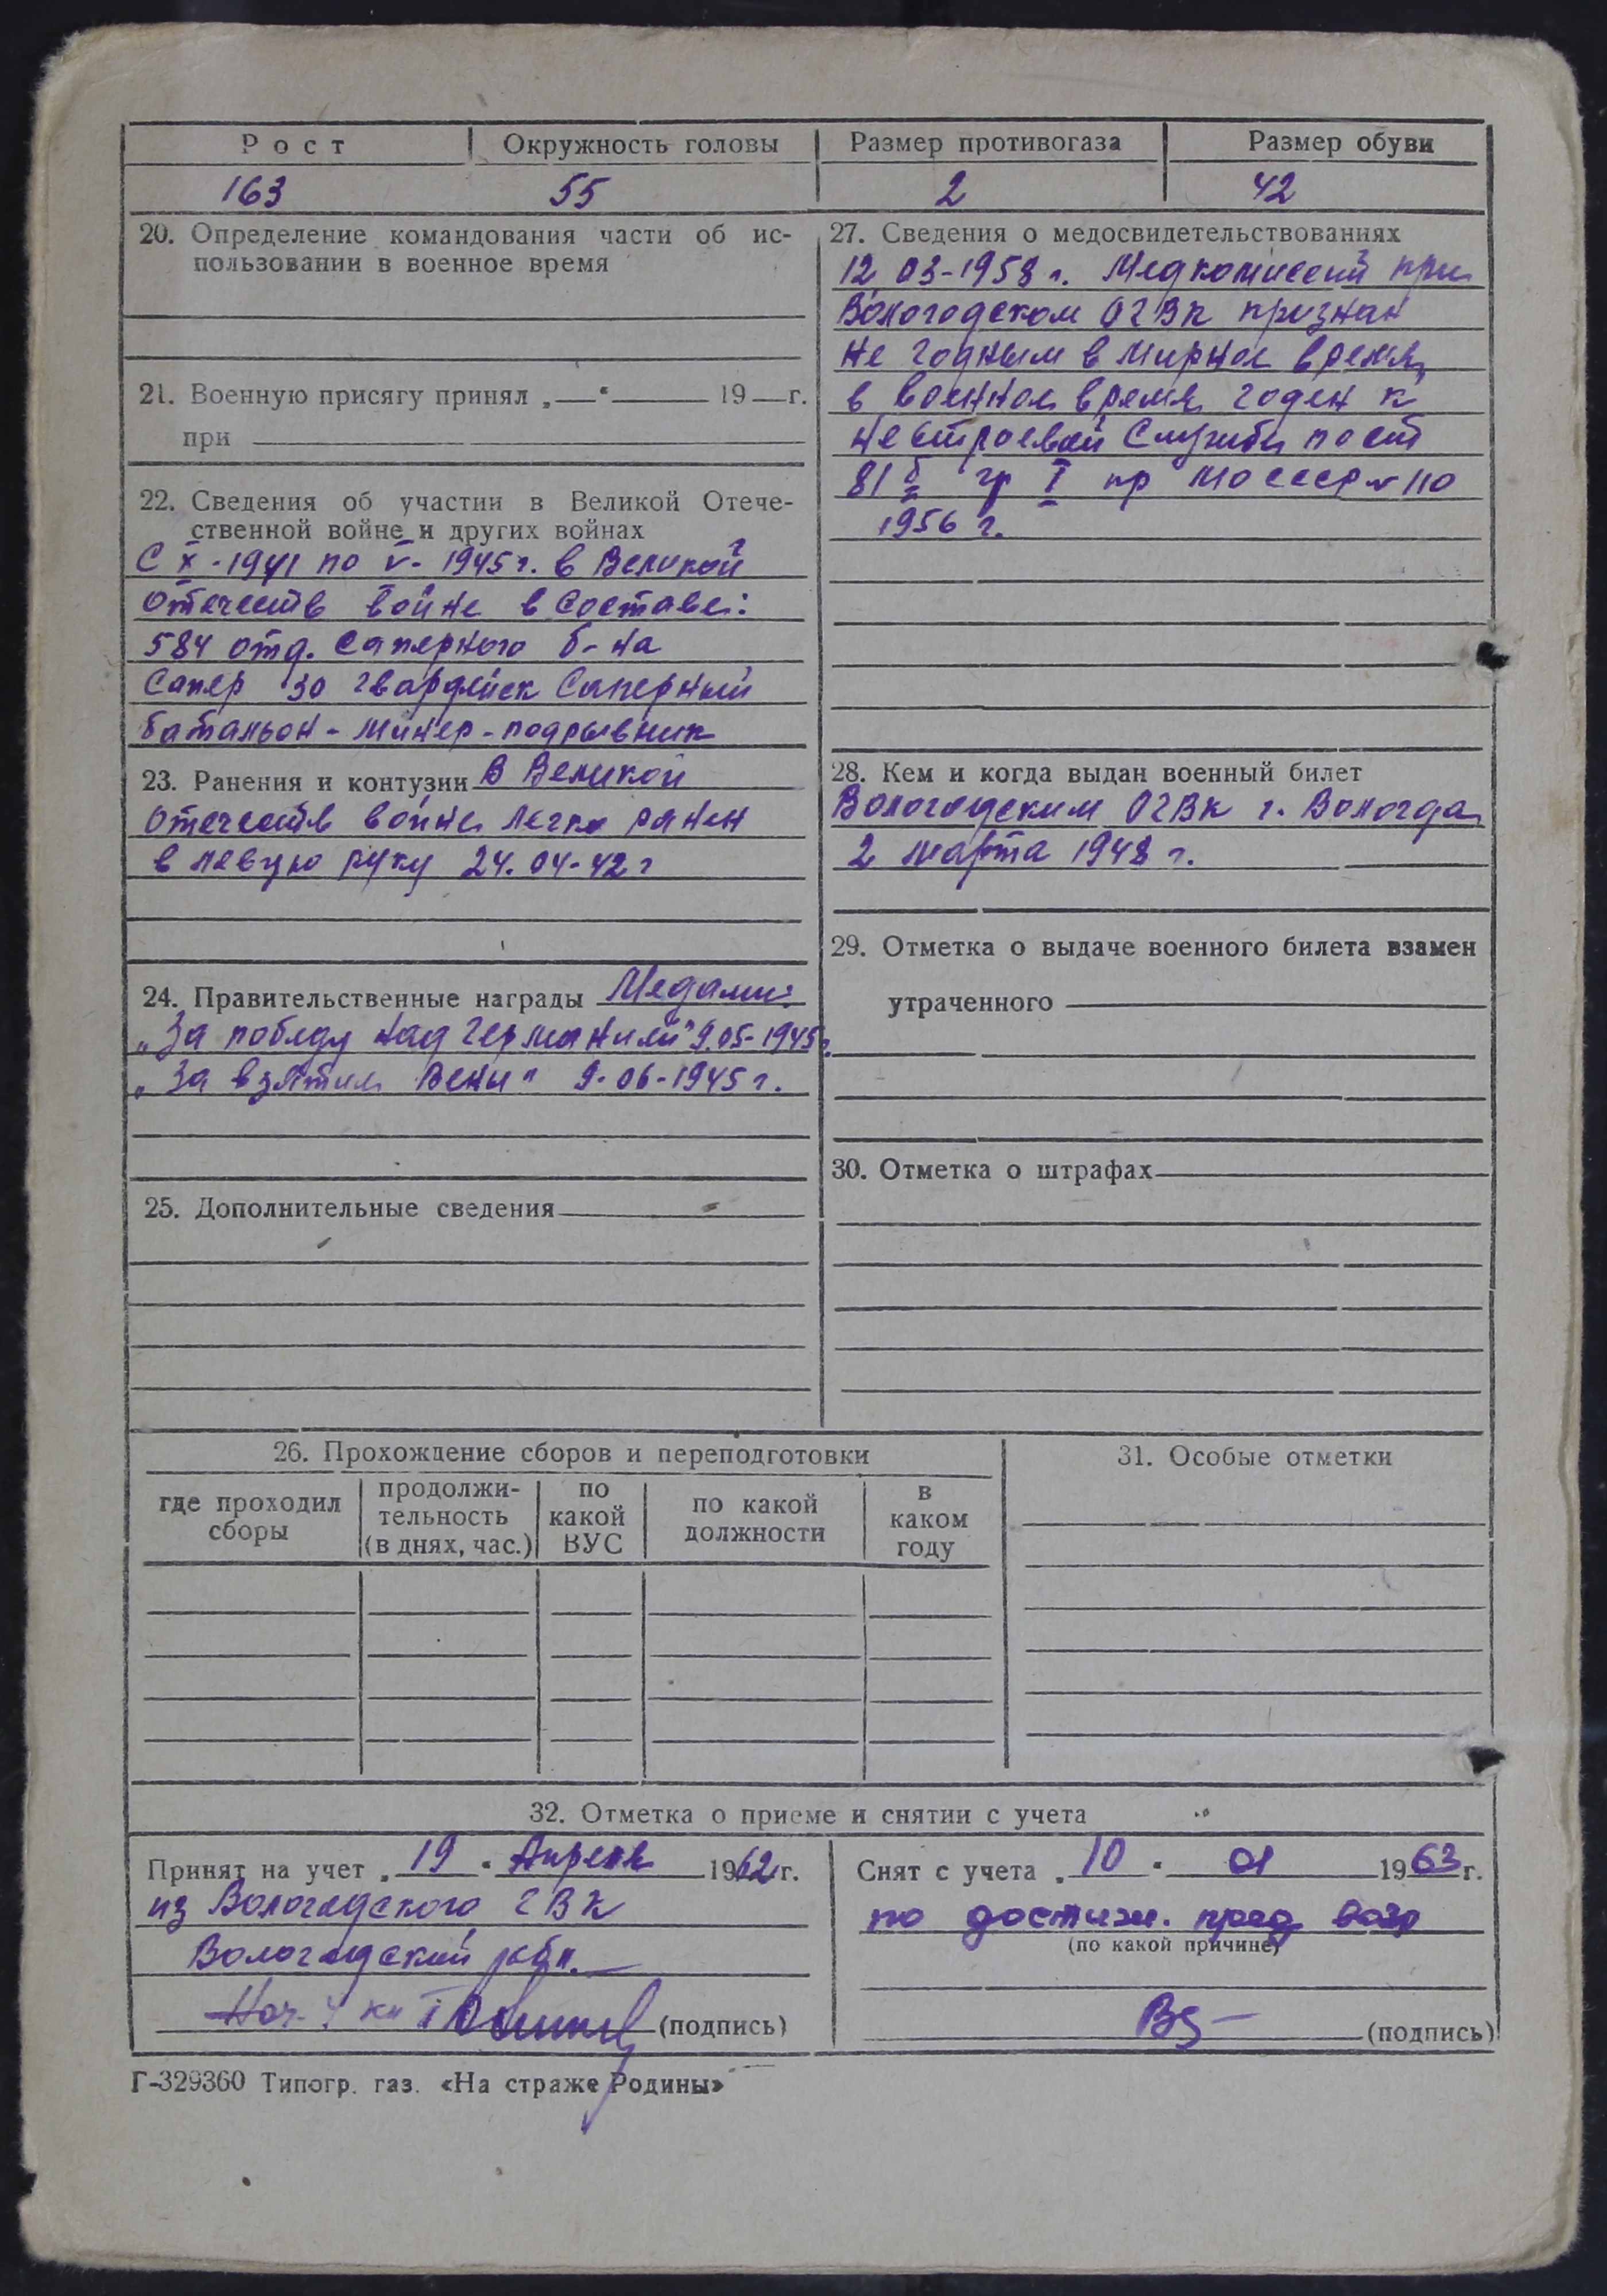 Рост Окружность головы Размер противогаза Размер обуви
163 55 2 42
20. Определение командования части об ис-
пользовании в военное время
21. Военную присягу принял „—“ 19—г.
при
22. Сведения об участии в Великой Отече-
ственной войне и других войнах
С X-1941 по V-1945г. в Великой
Отечеств войне в составе:
584 отд. Саперного б-на
Сапер 30 гвардейск Саперный
батальон - минер - подрывник
23. Ранения и контузии В Великой
Отечеств войне легко ранен
в левую руку 24.04-42г
24. Правительственные награды Медали:
„За победу над Германией" 9.05-1945г.
„За взятие Вены" 9-06-1945г.
25. Дополнительные сведения
27. Сведения о медосвидетельствованиях
12.03-1958г. Медкомиссий при
Вологодском ОГВК признан
не годным в мирное время,
в военное время годен к
нестроевой службы по ст
81б гр I пр МО СССР № 110
1956 г.
28. Кем и когда выдан военный билет
Вологодским ОГВК г. Вологда
2 марта 1948 г.
29. Отметка о выдаче военного билета взамен
утраченного
30. Отметка о штрафах
26. Прохождение сборов и переподготовки
где проходил сборы
продолжи-
тельность
(в днях, час.)
по
какой
ВУС
по какой
должности
в
каком
году
31. Особые отметки
32. Отметка о приеме и снятии с учета
Принят на учет „19" Апреля 1962г.
из Вологодского ГВК
Вологодский
Нач. 4
(подпись)
Снят с учета „10" 01 1963г.
по достиж. пред возр
(по какой причине)
(подпись)
Г-329360 Типогр. газ. «На страже Родины»